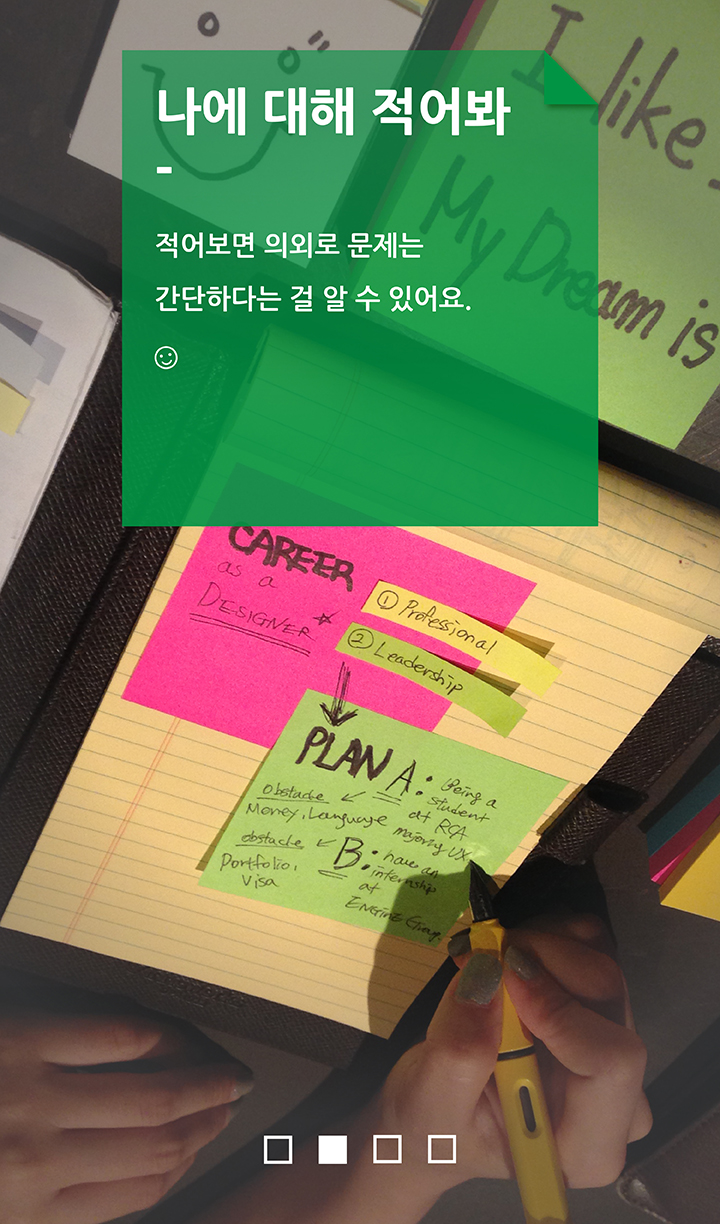 나에 대해 적어봐
-
적어보면 의외로 문제는
간단하다는 걸 알 수 있어요.
☺
I like
My Dream is
CAREER
as a
DESIGNER*
① Professional
② Leadership
PLAN A: Being a
student
at RCA
majoring UX
obstacle ↙
Money, Language
B: have an
internship
at
ENGINE Group.
obstacle ↙
Portfolio,
Visa